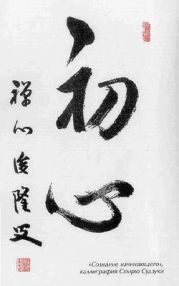 初心
禅心俊隆書
«Сознание начинающего»,
каллиграфия Сюнрю Судзуки